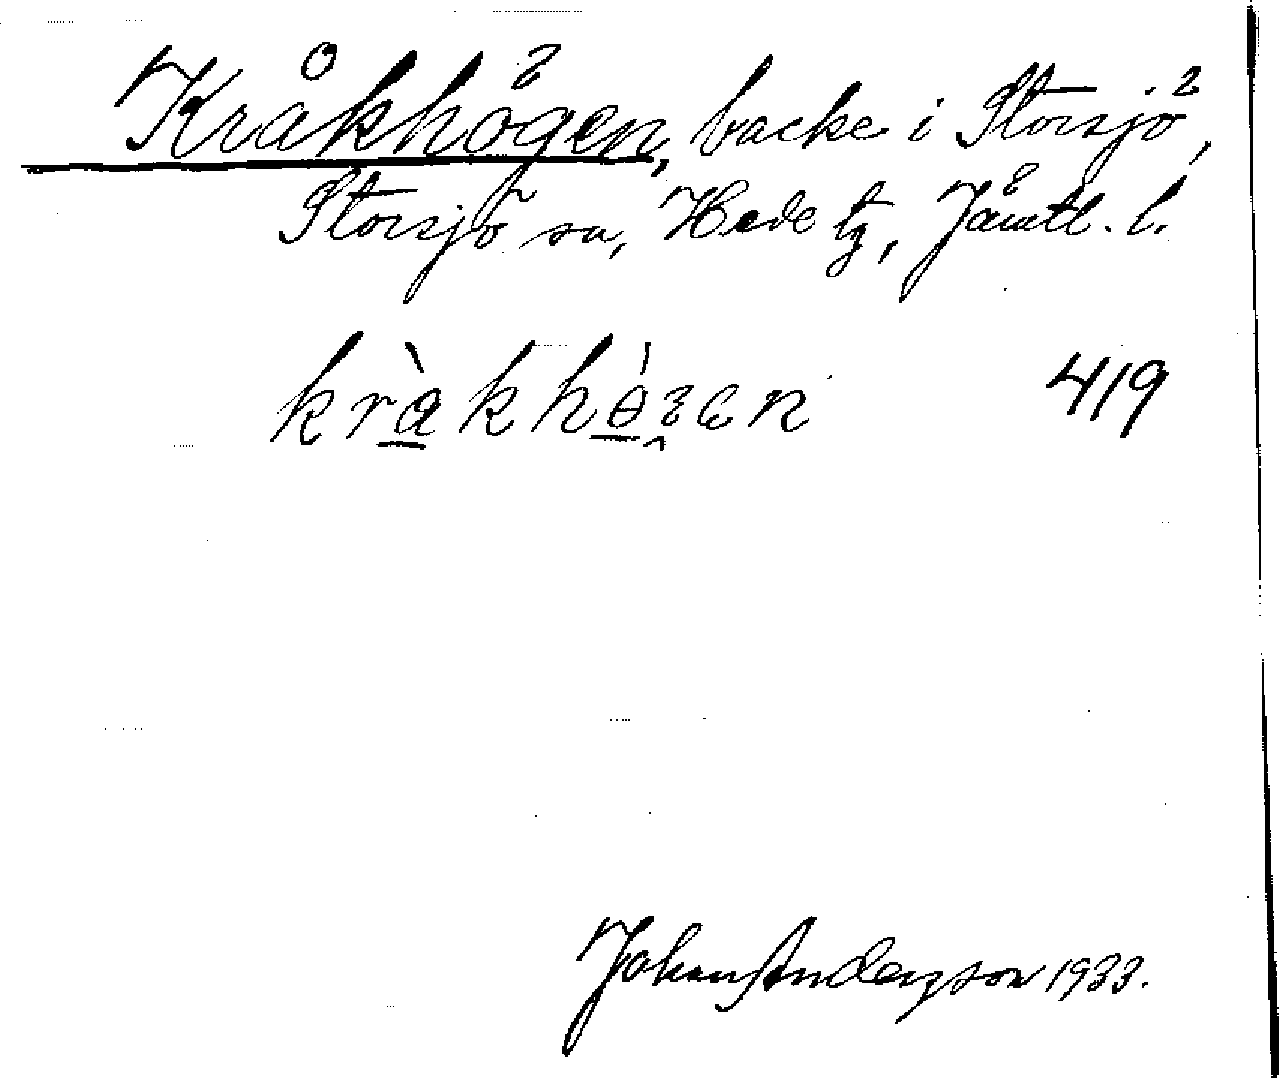 Kråkhögen, backe i Storsjö,
Storsjö sn, Hede tg, Jämtl. l.
kràkhǿgen 419
Johan Anderzson 1933.